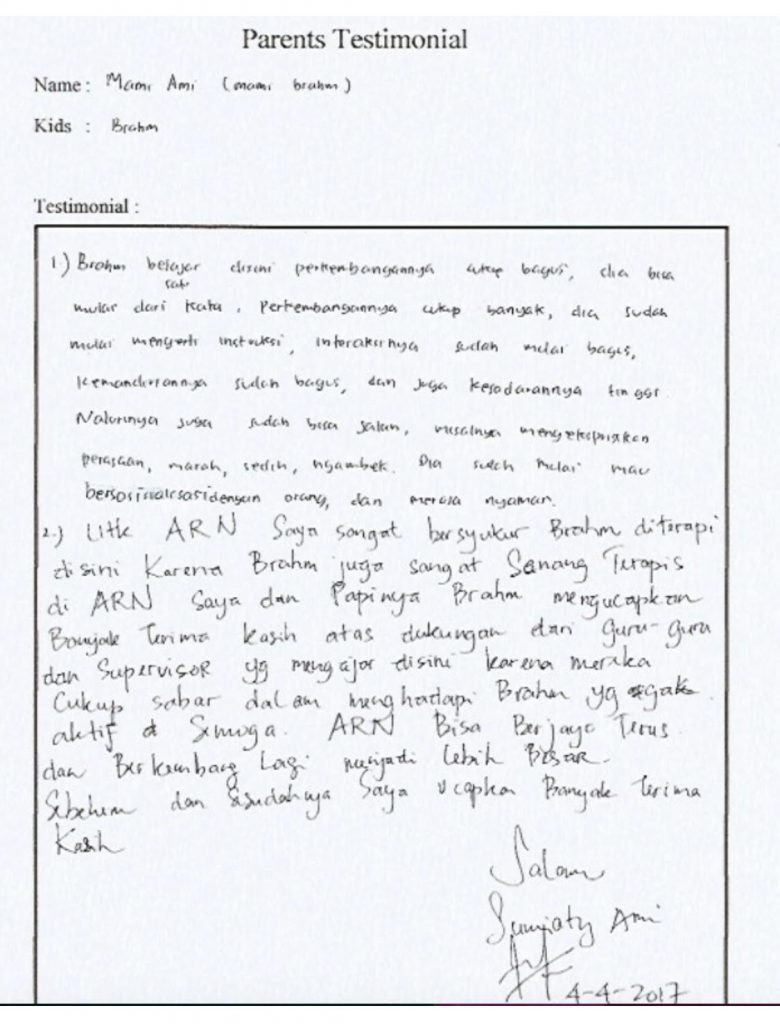 Parents Testimonial
Name : Mami Ami (mami brahm)
Kids : Brahm
Testimonial :
1.) Brahm belajar disini perkembangannya cukup bagus, dia bisa
satu
mulai dari kata. Perkembangannya cukup banyak, dia sudah
mulai mengerti instruksi, interaksinya sudah mulai bagus,
kemandiriannya sudah bagus, dan juga kesadarannya tinggi.
Nalurinya juga sudah bisa jalan, misalnya mengekspresikan
perasaan, marah, sedih, ngambek. Dia sudah mulai mau
bersosialisasi dengan orang, dan merasa nyaman.
2.) Utk ARN Saya sangat bersyukur Brahm diterapi
disini Karena Brahm juga sangat Senang Terapis
di ARN Saya dan Papinya Brahm mengucapkan
Banyak Terima kasih atas dukungan dari Guru-guru
dan Supervisor yg mengajar disini karena mereka
Cukup sabar dalam menghadapi Brahm yg agak
aktif Semoga. ARN Bisa Berjaya Terus
dan Berkembang Lagi menjadi Lebih Besar.
Sebelum dan Sesudahnya Saya ucapkan Banyak Terima
Kasih
Salam
Sumiaty Ami
4-4-2017